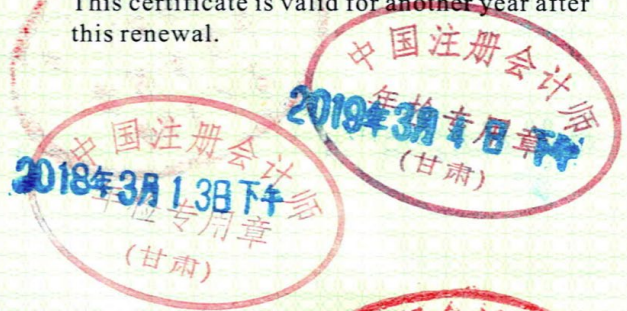 This certificate is valid for another year after
this renewal.
中国注册会计师
年检专用章
(甘肃)
2019年3月
日下午
中国注册会计师
年检专用章
(甘肃)
2018年3月13日下午